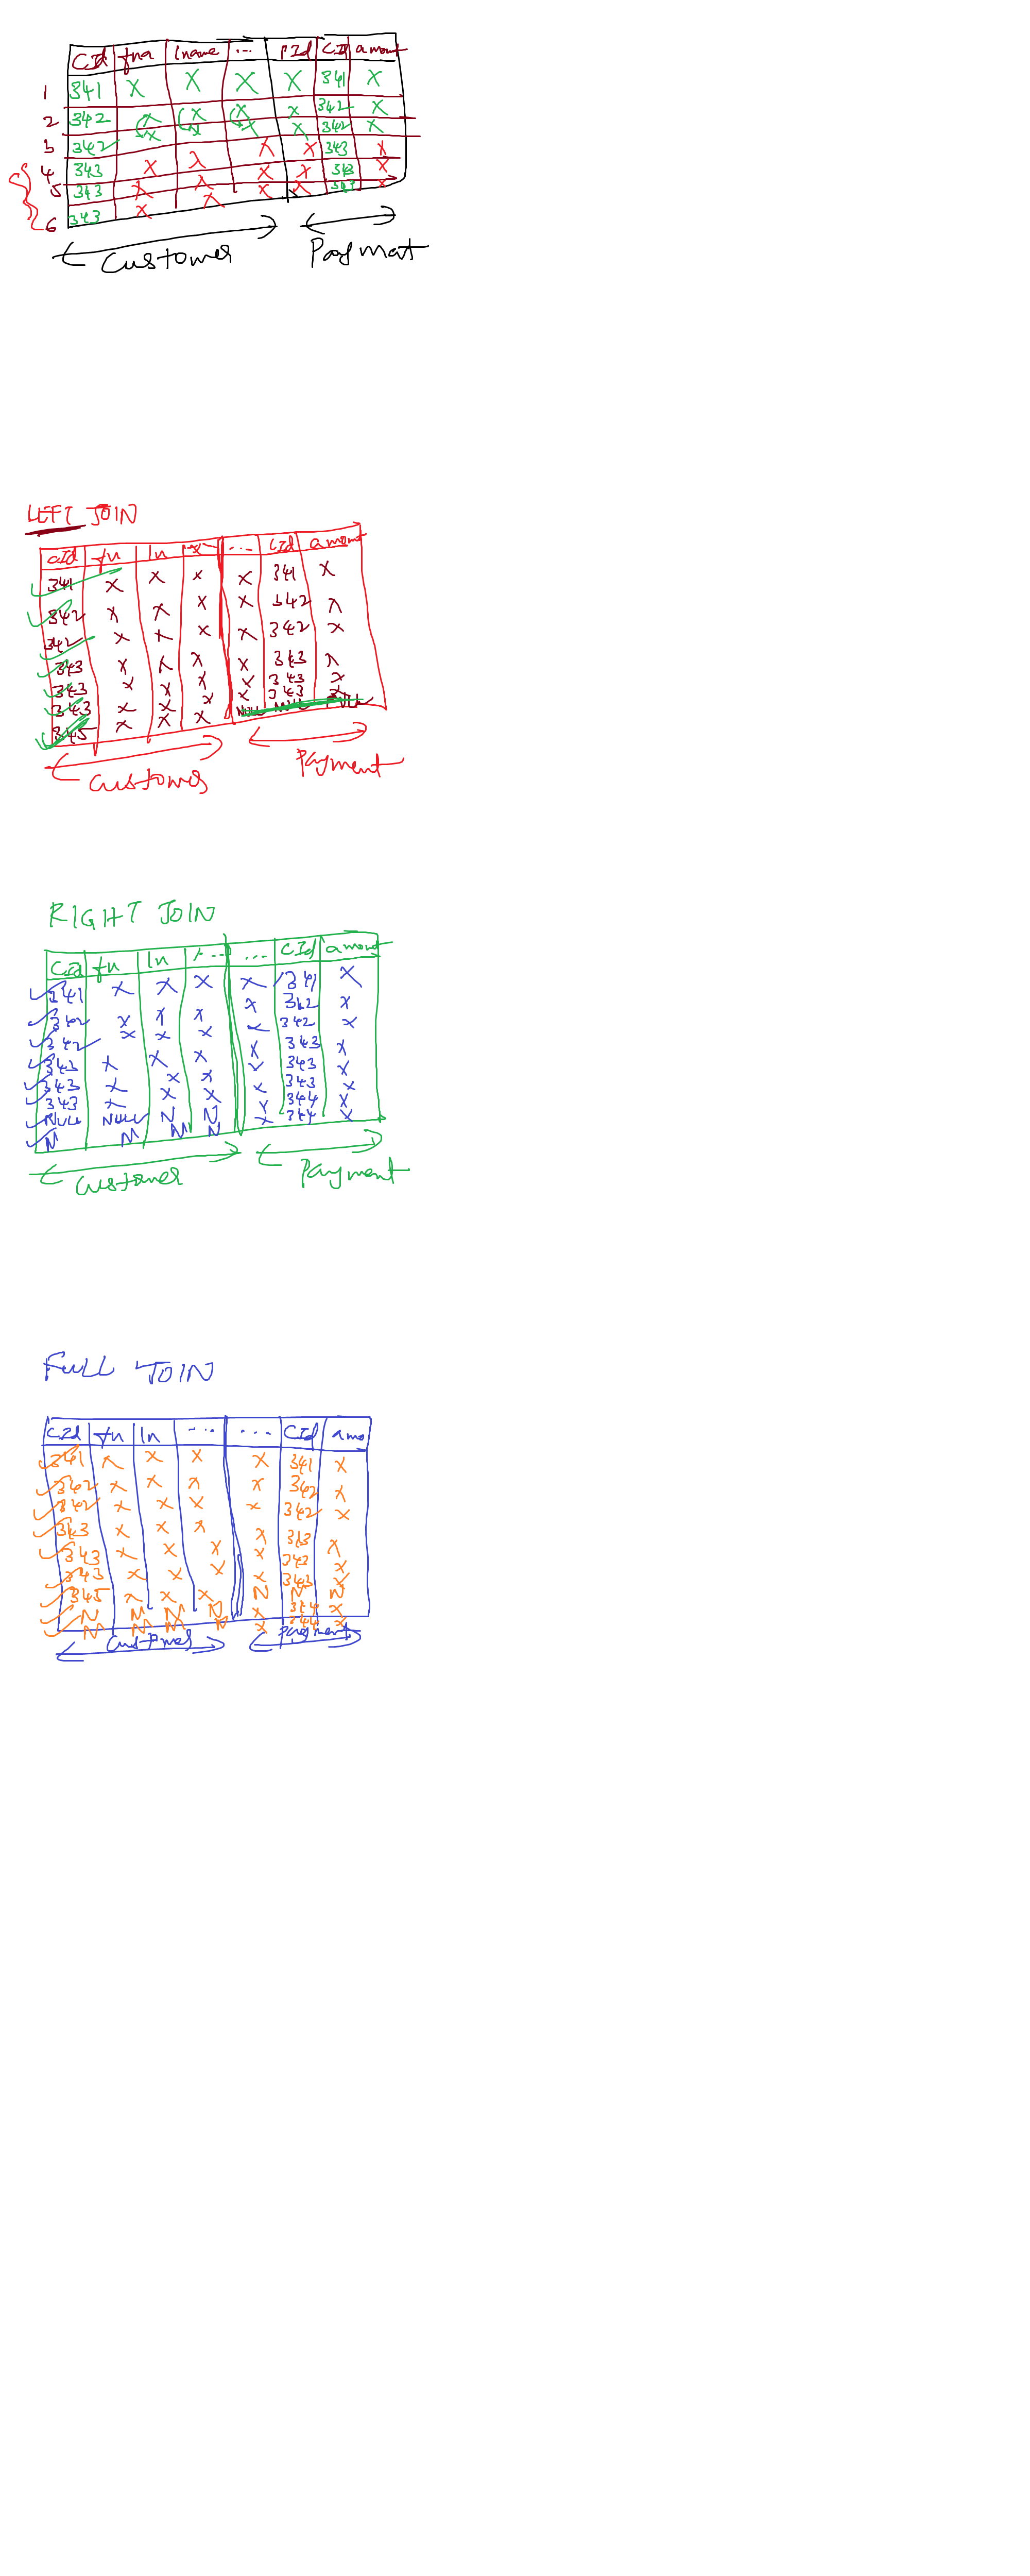 CId fna lname ... PId CId amount
1 341 X X X X 341 X
2 342 X X X X 342 X
3 342 X X X X 342 X
4 343 X X X X 343 X
5 343 X X X X 343 X
6 343 X X X X 343 X
Customer Payment
LEFT JOIN
CId fn ln ... ... CId amount
341 X X X X 341 X
342 X X X X 342 X
342 X X X X 342 X
343 X X X X 343 X
343 X X X X 343 X
343 X X X X 343 X
345 X X X NULL NULL NULL
Customer Payment
RIGHT JOIN
CId fn ln ... ... CId amount
341 X X X X 341 X
342 X X X X 342 X
342 X X X X 342 X
343 X X X X 343 X
343 X X X X 343 X
343 X X X X 343 X
NULL NULL N N X 344 X
N N N N X 344 X
Customer Payment
FULL JOIN
CId fn ln ... ... CId amo
341 X X X X 341 X
342 X X X X 342 X
342 X X X X 342 X
343 X X X X 343 X
343 X X X X 343 X
343 X X X X 343 X
345 X X X N N N
N N N N X 344 X
N N N N X 344 X
Customer Payment